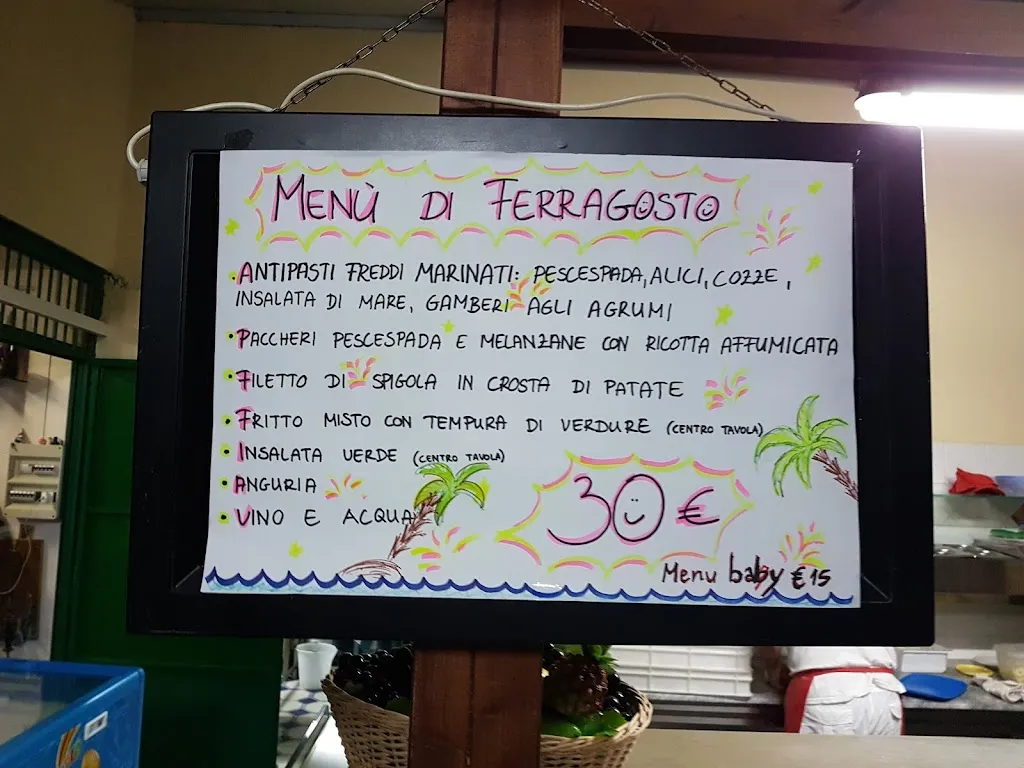 MENÙ DI FERRAGOSTO
• ANTIPASTI FREDDI MARINATI: PESCESPADA, ALICI, COZZE,
INSALATA DI MARE, GAMBERI AGLI AGRUMI
• PACCHERI PESCESPADA E MELANZANE CON RICOTTA AFFUMICATA
• FILETTO DI SPIGOLA IN CROSTA DI PATATE
• FRITTO MISTO CON TEMPURA DI VERDURE (CENTRO TAVOLA)
• INSALATA VERDE (CENTRO TAVOLA)
• ANGURIA
• VINO E ACQUA
30 €
Menu baby € 15